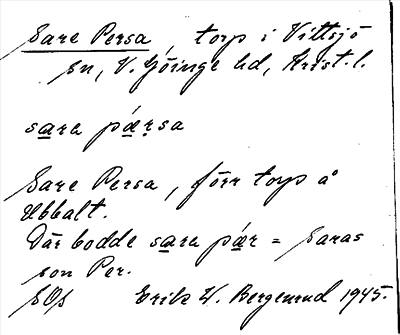 Sare Persa, torp i Vittsjö
sn, V. Göinge hd, Krist. l.
sara pæ̣rsa
Sare Persa, förr torp å
Ubbalt.
Där bodde sara pær = Saras
son Per.
Erik W. Bergenrud 1945.